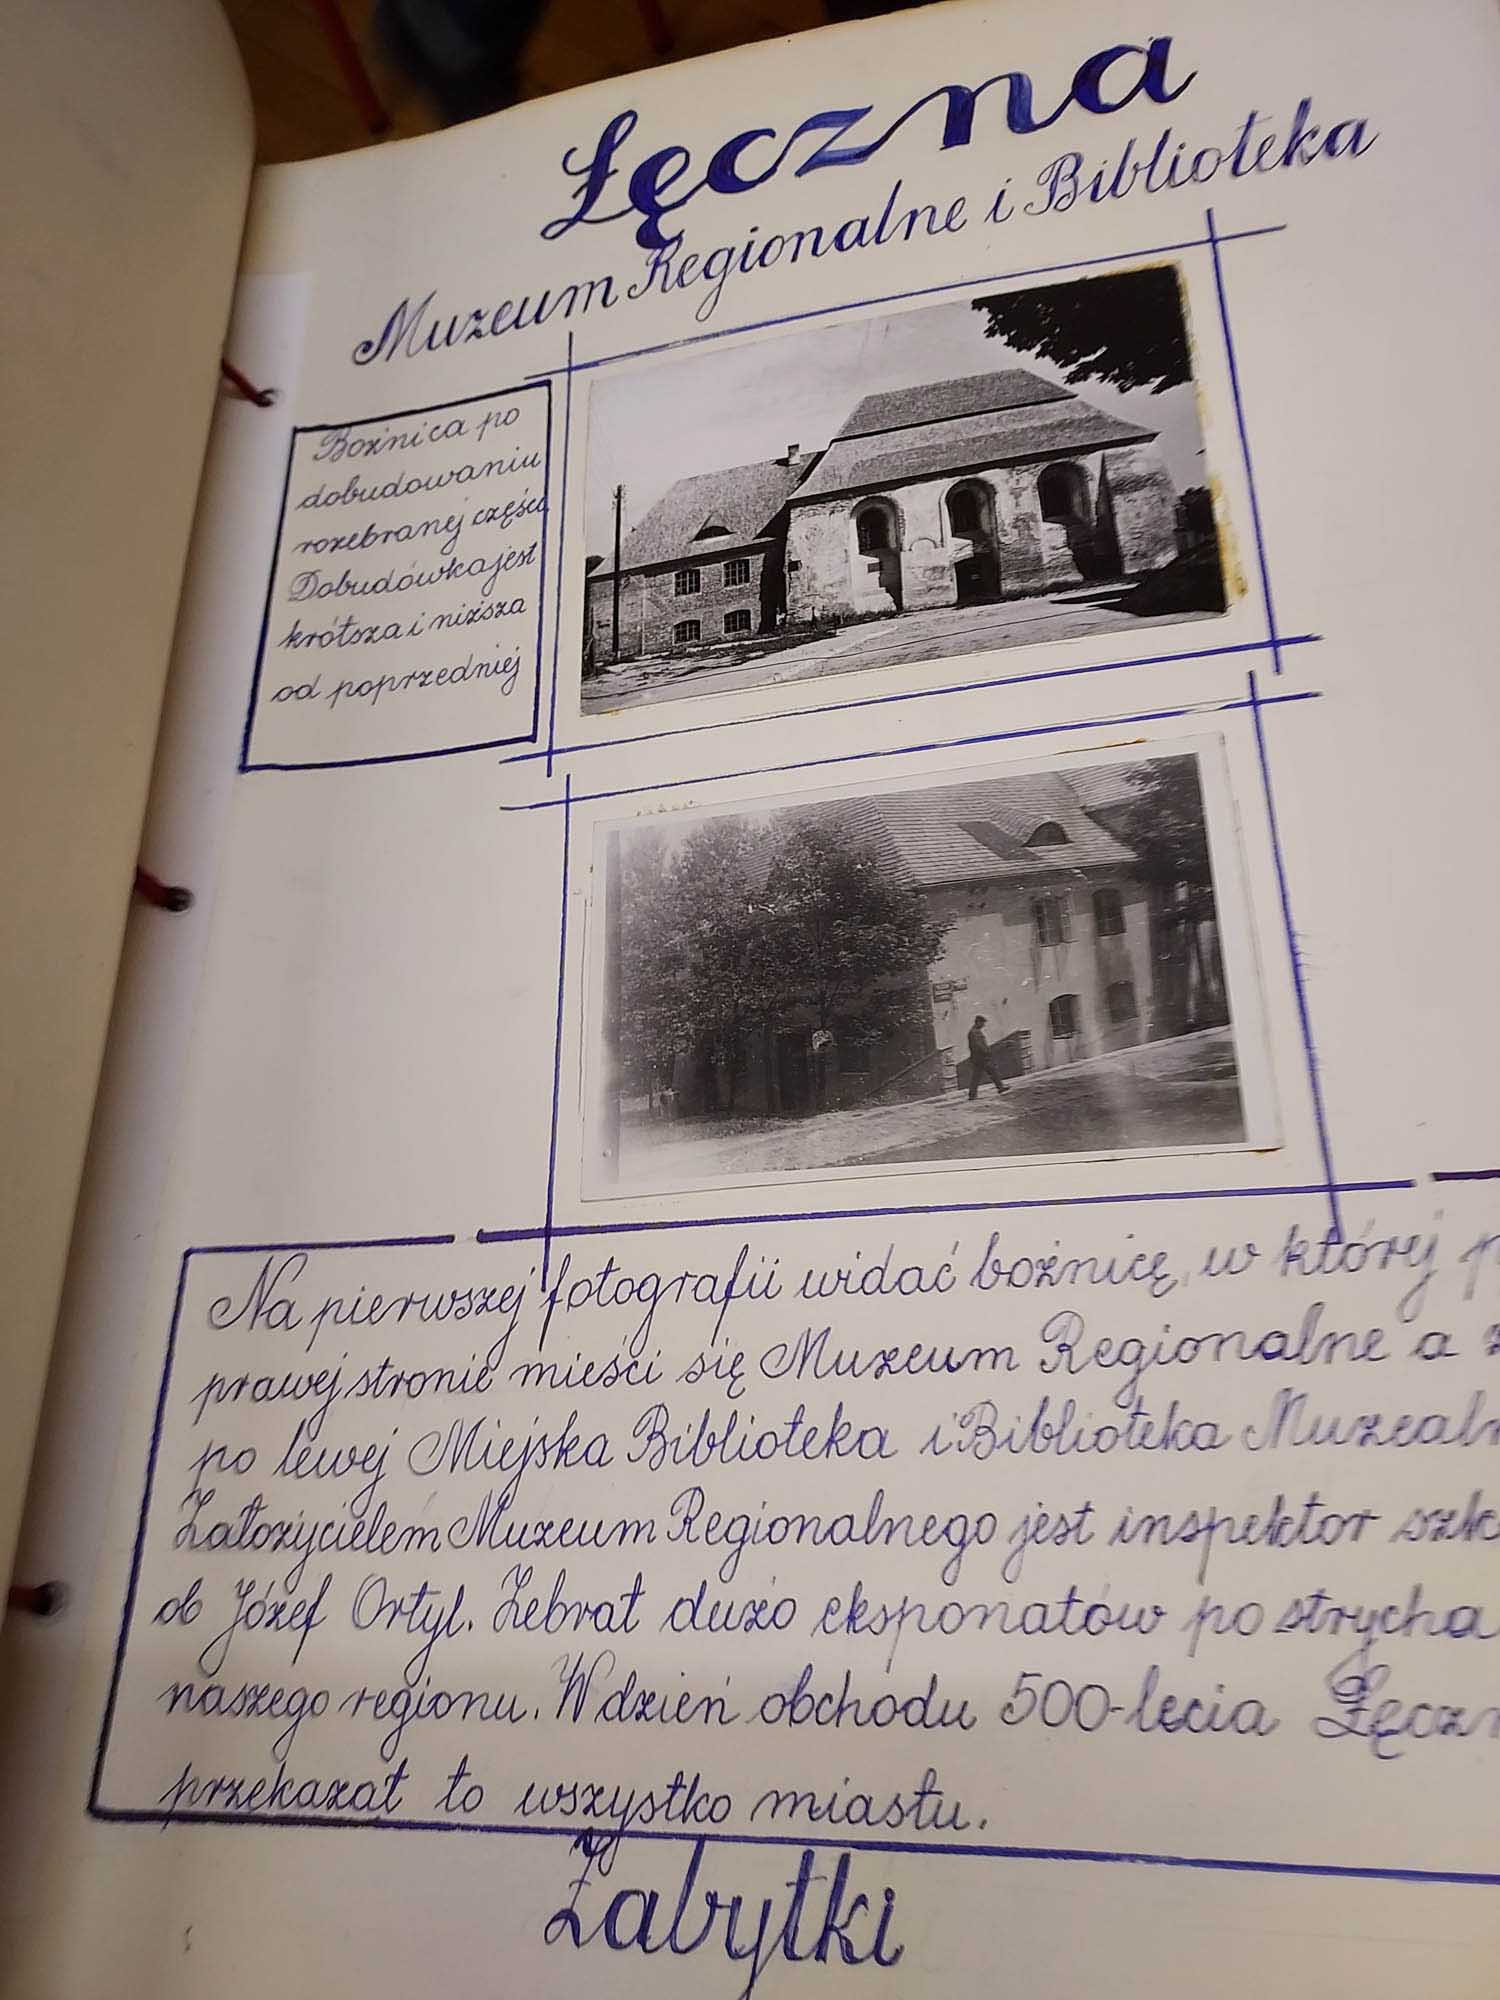 Łęczna
Muzeum Regionalne i Biblioteka
Bożnica po
dobudowaniu
rozebranej części
Dobudówka jest
krótsza i niższa
od poprzedniej
Na pierwszej fotografii widać bożnicę, w której p
prawej stronie mieści się Muzeum Regionalne a z
po lewej Miejska Biblioteka i Biblioteka Muzealn
Założycielem Muzeum Regionalnego jest inspektor szk
ob Józef Ortyl. Zebrał dużo eksponatów po strycha
naszego regionu. W dzień obchodu 500-lecia Łęczn
przekazał to wszystko miastu.
Zabytki